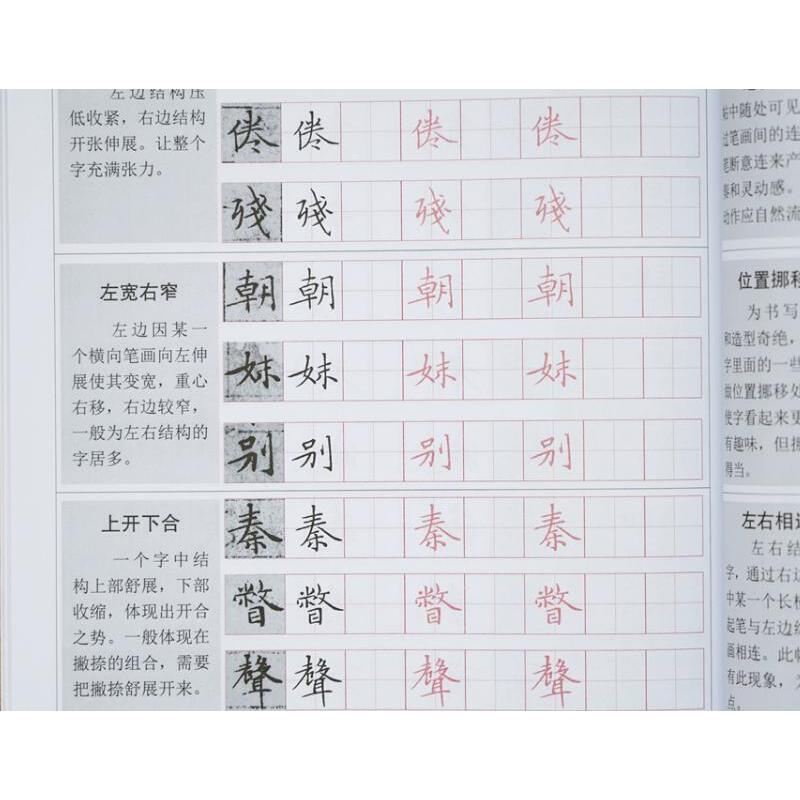 左边结构压
低收紧，右边结构
开张伸展。让整个
字充满张力。
倦 倦 倦 倦
残 残 残 残
左宽右窄
左边因某一
个横向笔画向左伸
展使其变宽，重心
右移，右边较窄，
一般为左右结构的
字居多。
朝 朝 朝 朝
妹 妹 妹 妹
别 别 别 别
上开下合
一个字中结
构上部舒展，下部
收缩，体现出开合
之势。一般体现在
撇捺的组合，需要
把撇捺舒展开来。
秦 秦 秦 秦
聲 聲 聲 聲
帖中随处可见
过笔画间的连
笔断意连来产
奏和灵动感。
动作应自然流
位置挪移
为书写
和造型奇绝，
字里面的一些
做位置挪移处
使字看起来更
有趣味，但挪
得当。
左右相连
左右结
字，通过右边
中某一个长横
起笔与左边结
画相连。此帖
有此现象，为
点。